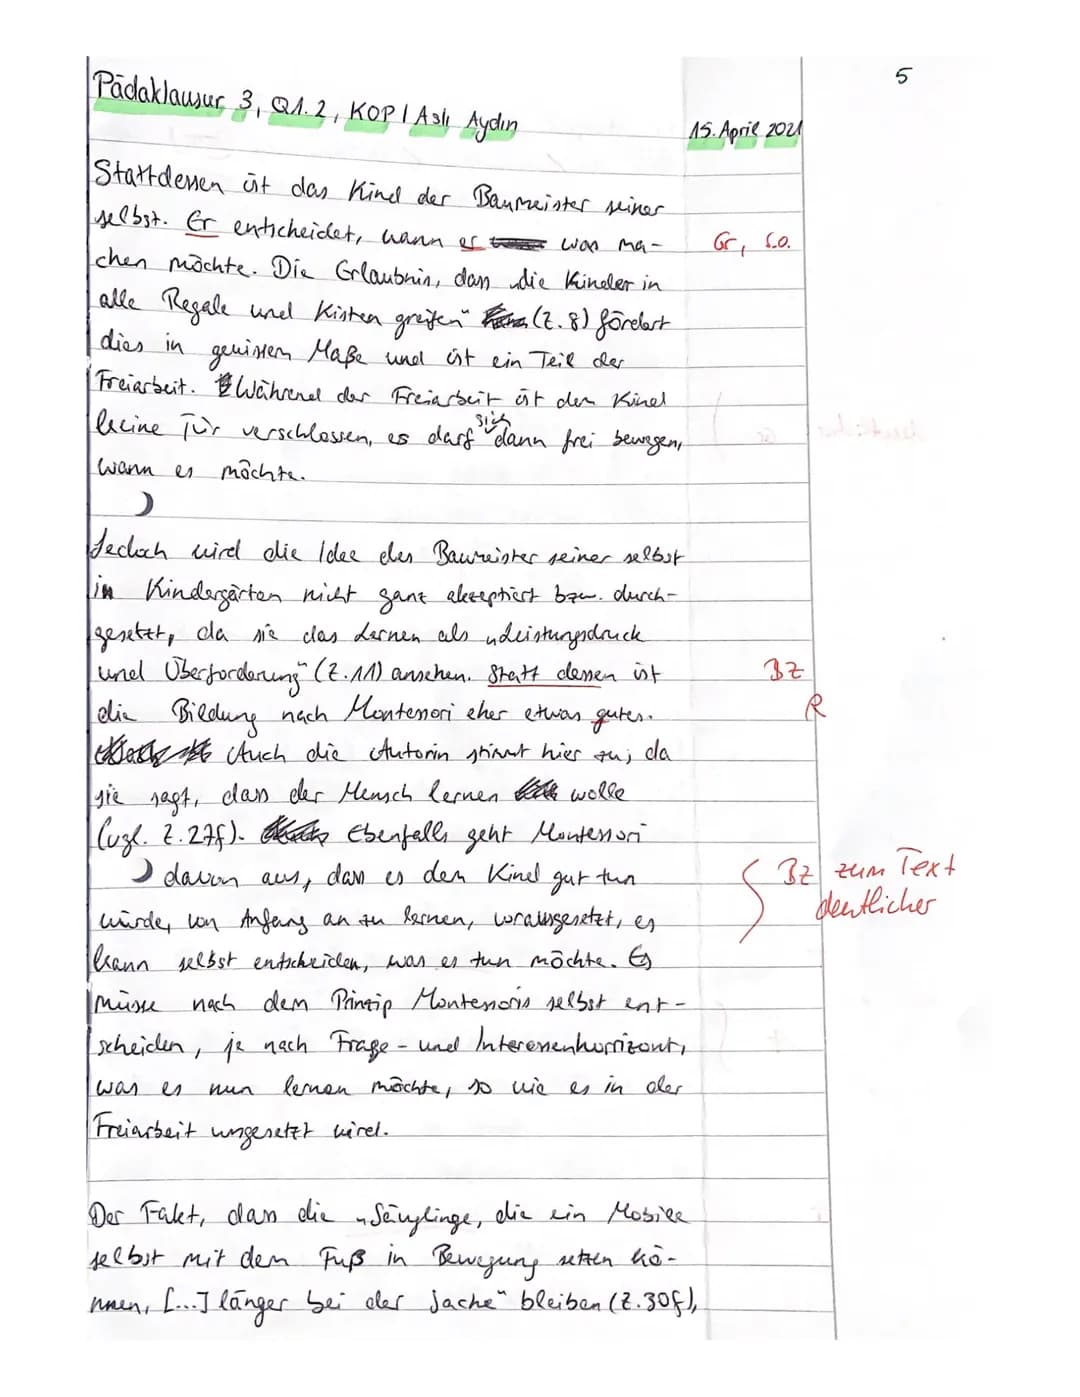 5
Pädaklausur 3, Q1.2, KOP | Aslı Aydın
15. April 2021
Stattdessen ist das Kind der Baumeister seiner
selbst. Er entscheidet, wann er was ma-
Gr, s.o.
chen möchte. Die Erlaubnis, dass „die Kinder in
alle Regale und Kisten greifen" (Z. 8) fördert
dies in gewissem Maße und ist ein Teil der
Freiarbeit. Während der Freiarbeit ist dem Kind
keine Tür verschlossen, es darf sich dann frei bewegen,
wann es möchte.
Jedoch wird die Idee des Baumeister seiner selbst
in Kindergärten nicht ganz akzeptiert bzw. durch-
gesetzt, da sie das Lernen als „Leistungsdruck
und Überforderung" (Z. 11) ansehen. Statt dessen ist
BZ
die Bildung nach Montessori eher etwas gutes.
R
Auch die Autorin stimmt hier zu, da
sie sagt, dass der Mensch lernen wolle
(vgl. Z. 27f). Ebenfalls geht Montessori
davon aus, dass es dem Kind gut tun
BZ zum Text
deutlicher
würde, von Anfang an zu lernen, vorausgesetzt, es
kann selbst entscheiden, was es tun möchte. Es
müsse nach dem Prinzip Montessoris selbst ent-
scheiden, je nach Frage- und Interessenhorrizont,
was es nun lernen möchte, so wie es in der
Freiarbeit umgesetzt wird.
Der Fakt, dass die „Säuglinge, die ein Mobile
selbst mit dem Fuß in Bewegung setzen kö-
nnen, [...] länger bei der Sache" bleiben (Z. 30f),